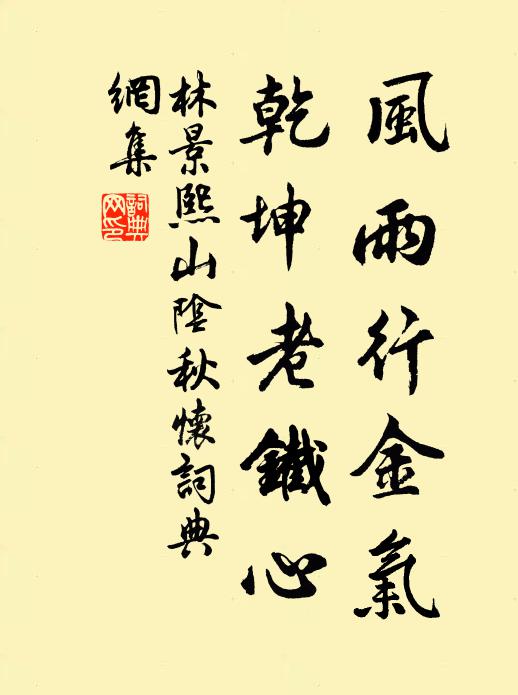 風雨行金氣
乾坤老鐵心
林景熙山陰秋懷詞典
網集
詞典
网印